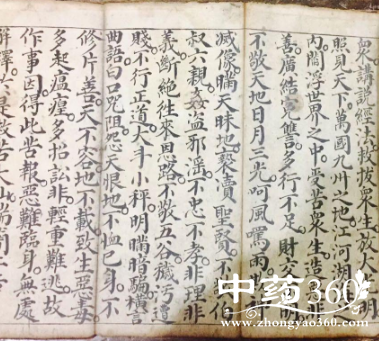 衆講說經法救拔衆生放大光明
照見天下萬國九州之地江河湖
内閻浮世界之中受苦衆生造
善廣結冤讐多行不足財
不敬天地日月三光呵風罵雨
滅像瞞天昧地塾賣聖賢不
叔六親姦盗邪滛不忠不孝非理非
義斷絶往來恩路不敬五谷穢污遺
賤不行正道大斗小秤明瞞暗騙樗言
曲語曰口咒咀怨天恨地不恤己身不
修片善天不容地不載致生惡毒
多起瘟瘽多招訟非輕重難逃故
作事因得此苦報惡難臨身無處
解釋
中药360
www.zhongyao360.com